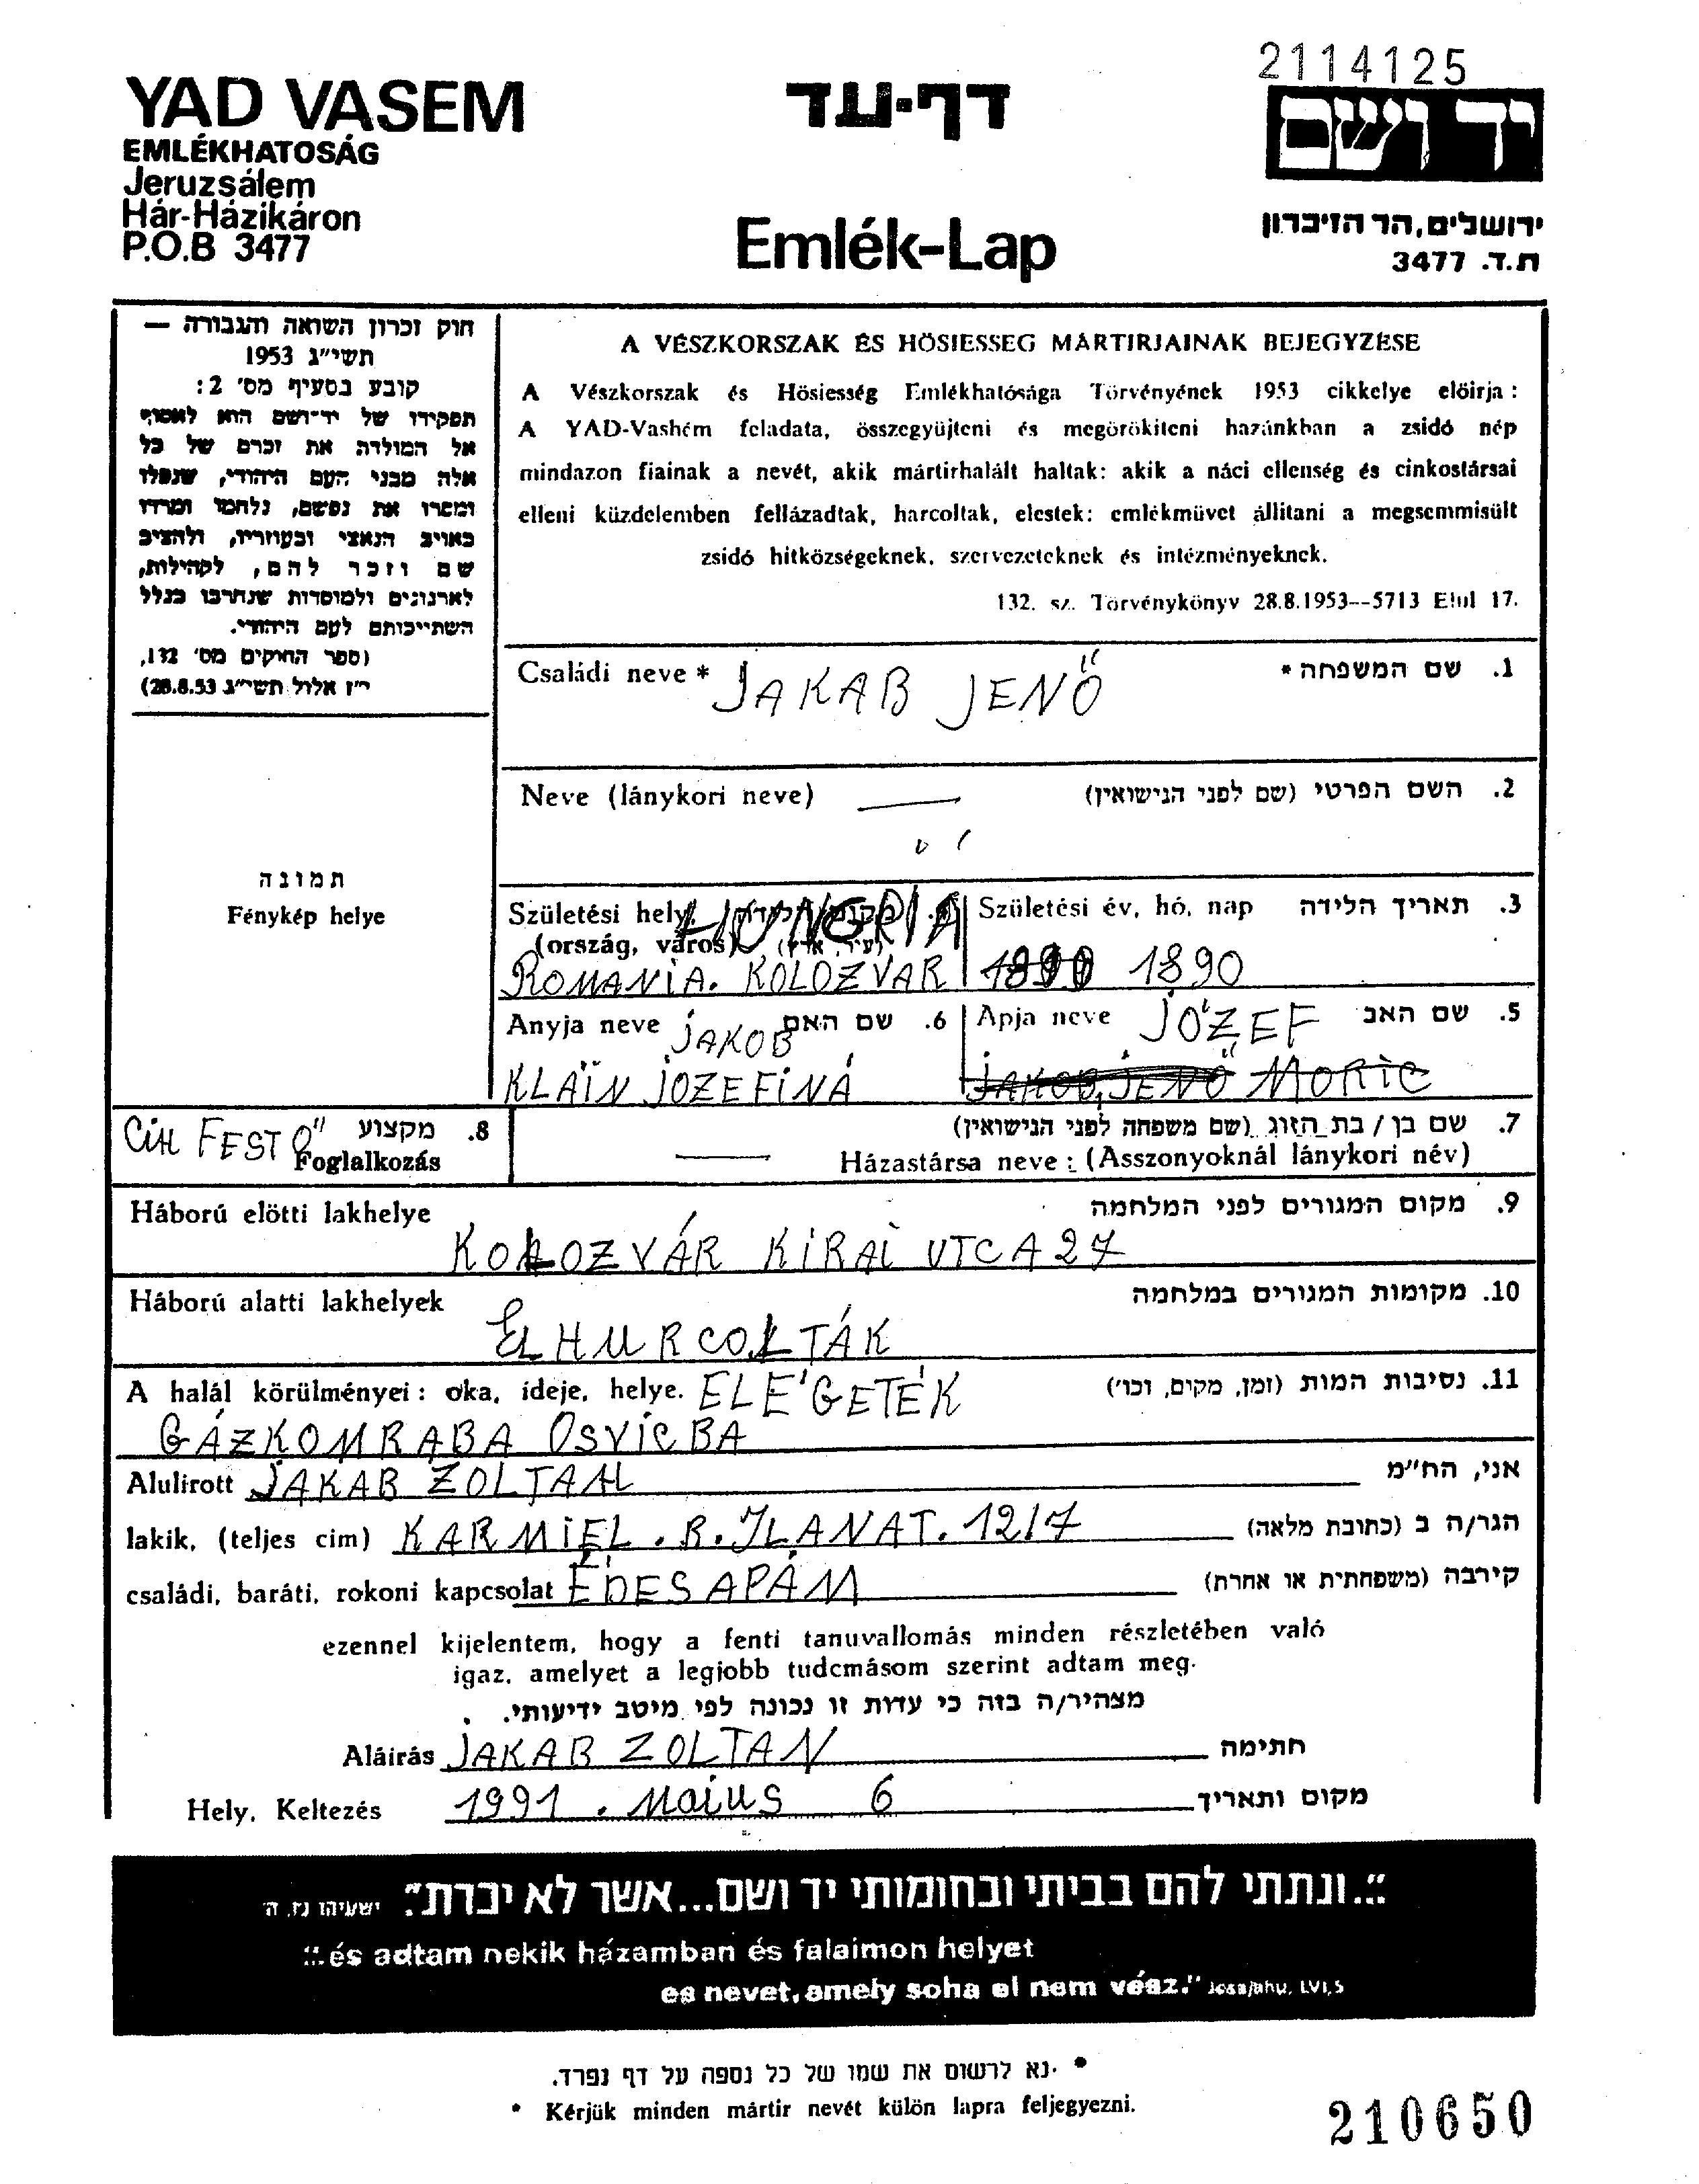 2114125
YAD VASEM
EMLÉKHATOSÁG
Jeruzsálem
Hár-Házikáron
P.O.B 3477
דף-עד
Emlék-Lap
יד ושם
ירושלים, הר הזיכרון
ת.ד. 3477
חוק זכרון השואה והגבורה —
תשי"ג 1953
קובע בסעיף מס' 2:
תפקידו של יד-ושם הוא לאסוף
אל המולדת את זכרם של כל
אלה מבני העם היהודי, שנפלו
ומסרו את נפשם, נלחמו ומרדו
באויב הנאצי ובעוזריו, ולהציב
שם וזכר להם, לקהילות,
לארגונים ולמוסדות שנחרבו בגלל
השתייכותם לעם היהודי.
(ספר החוקים מס' 132,
י"ז אלול תשי"ג 28.8.53)
תמונה
Fénykép helye
A VÉSZKORSZAK ÉS HÖSIESSEG MÁRTIRJAINAK BEJEGYZÉSE
A Vészkorszak és Hösiesség Emlékhatósága Törvényének 1953 cikkelye elöirja :
A YAD-Vashém feladata, összegyüjteni és megörökiteni hazánkban a zsidó nép
mindazon fiainak a nevét, akik mártirhalált haltak: akik a náci ellenség és cinkostársai
elleni küzdelemben fellázadtak, harcoltak, elestek: emlékmüvet állitani a megsemmisült
zsidó hitközségeknek, szervezeteknek és intézményeknek.
132. sz. Törvénykönyv 28.8.1953--5713 Elul 17.
Családi neve * JAKAB JENŐ 1. שם המשפחה *
Neve (lánykori neve) — 2. השם הפרטי (שם לפני הנישואין)
Születési hely HUNGRIA Születési év, hó, nap 3. תאריך הלידה
(ország, város) (עיר, ארץ)
ROMANIA. KOLOZVAR 1890
Anyja neve JAKOB 6. שם האם Apja neve JÓZEF 5. שם האב
KLAIN JOZEFINÁ JAKOB, JENŐ MORIC
CIH FESTŐ 8. מקצוע
Foglalkozás
7. שם בן / בת הזוג (שם משפחה לפני הנישואין)
— Házastársa neve : (Asszonyoknál lánykori név)
Háború elötti lakhelye 9. מקום המגורים לפני המלחמה
KOLOZVÁR KIRAI UTCA 27
Háború alatti lakhelyek 10. מקומות המגורים במלחמה
ELHURCOLTÁK
A halál körülményei : oka, ideje, helye. ELÉGETÉK 11. נסיבות המות (זמן, מקום, וכו')
GÁZKOMRABA OSVICBA
Alulirott JAKAB ZOLTAN אני, הח"מ
lakik, (teljes cim) KARMIEL . R. ILANAT. 12/7 הגר/ה ב (כתובת מלאה)
családi, baráti, rokoni kapcsolat ÉDESAPÁM קירבה (משפחתית או אחרת)
ezennel kijelentem, hogy a fenti tanuvallomás minden részletében való
igaz, amelyet a legjobb tudomásom szerint adtam meg.
מצהיר/ה בזה כי עדות זו נכונה לפי מיטב ידיעותי.
Aláirás JAKAB ZOLTAN חתימה
Hely, Keltezés 1991 . Maius 6 מקום ותאריך
"..ונתתי להם בביתי ובחומותי יד ושם...אשר לא יכרת". ישעיהו נו, ה'
"..és adtam nekik házamban és falaimon helyet
es nevet, amely soha el nem vész." Jesajahu, LVI,5
* נא לרשום את שמו של כל נספה על דף נפרד.
* Kérjük minden mártir nevét külön lapra feljegyezni.
210650